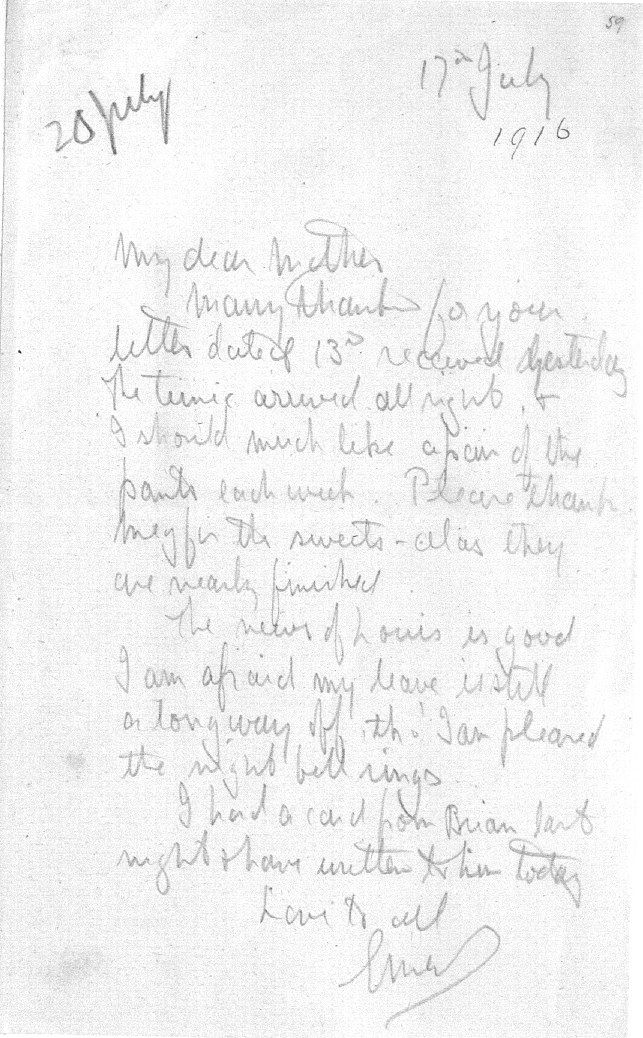 59
17th July
1916
20 July
My dear Mother
Many thanks for your
letter dated 13th received yesterday
The tunic arrived all right, &
I should much like a pair of the
pants each week. Please thank
Meg for the sweets - alas they
are nearly finished
The news of Louis is good
I am afraid my leave is still
a long way off, tho' I am pleased
the night bell rings.
I had a card from Brian last
night & have written to him today
Love to all